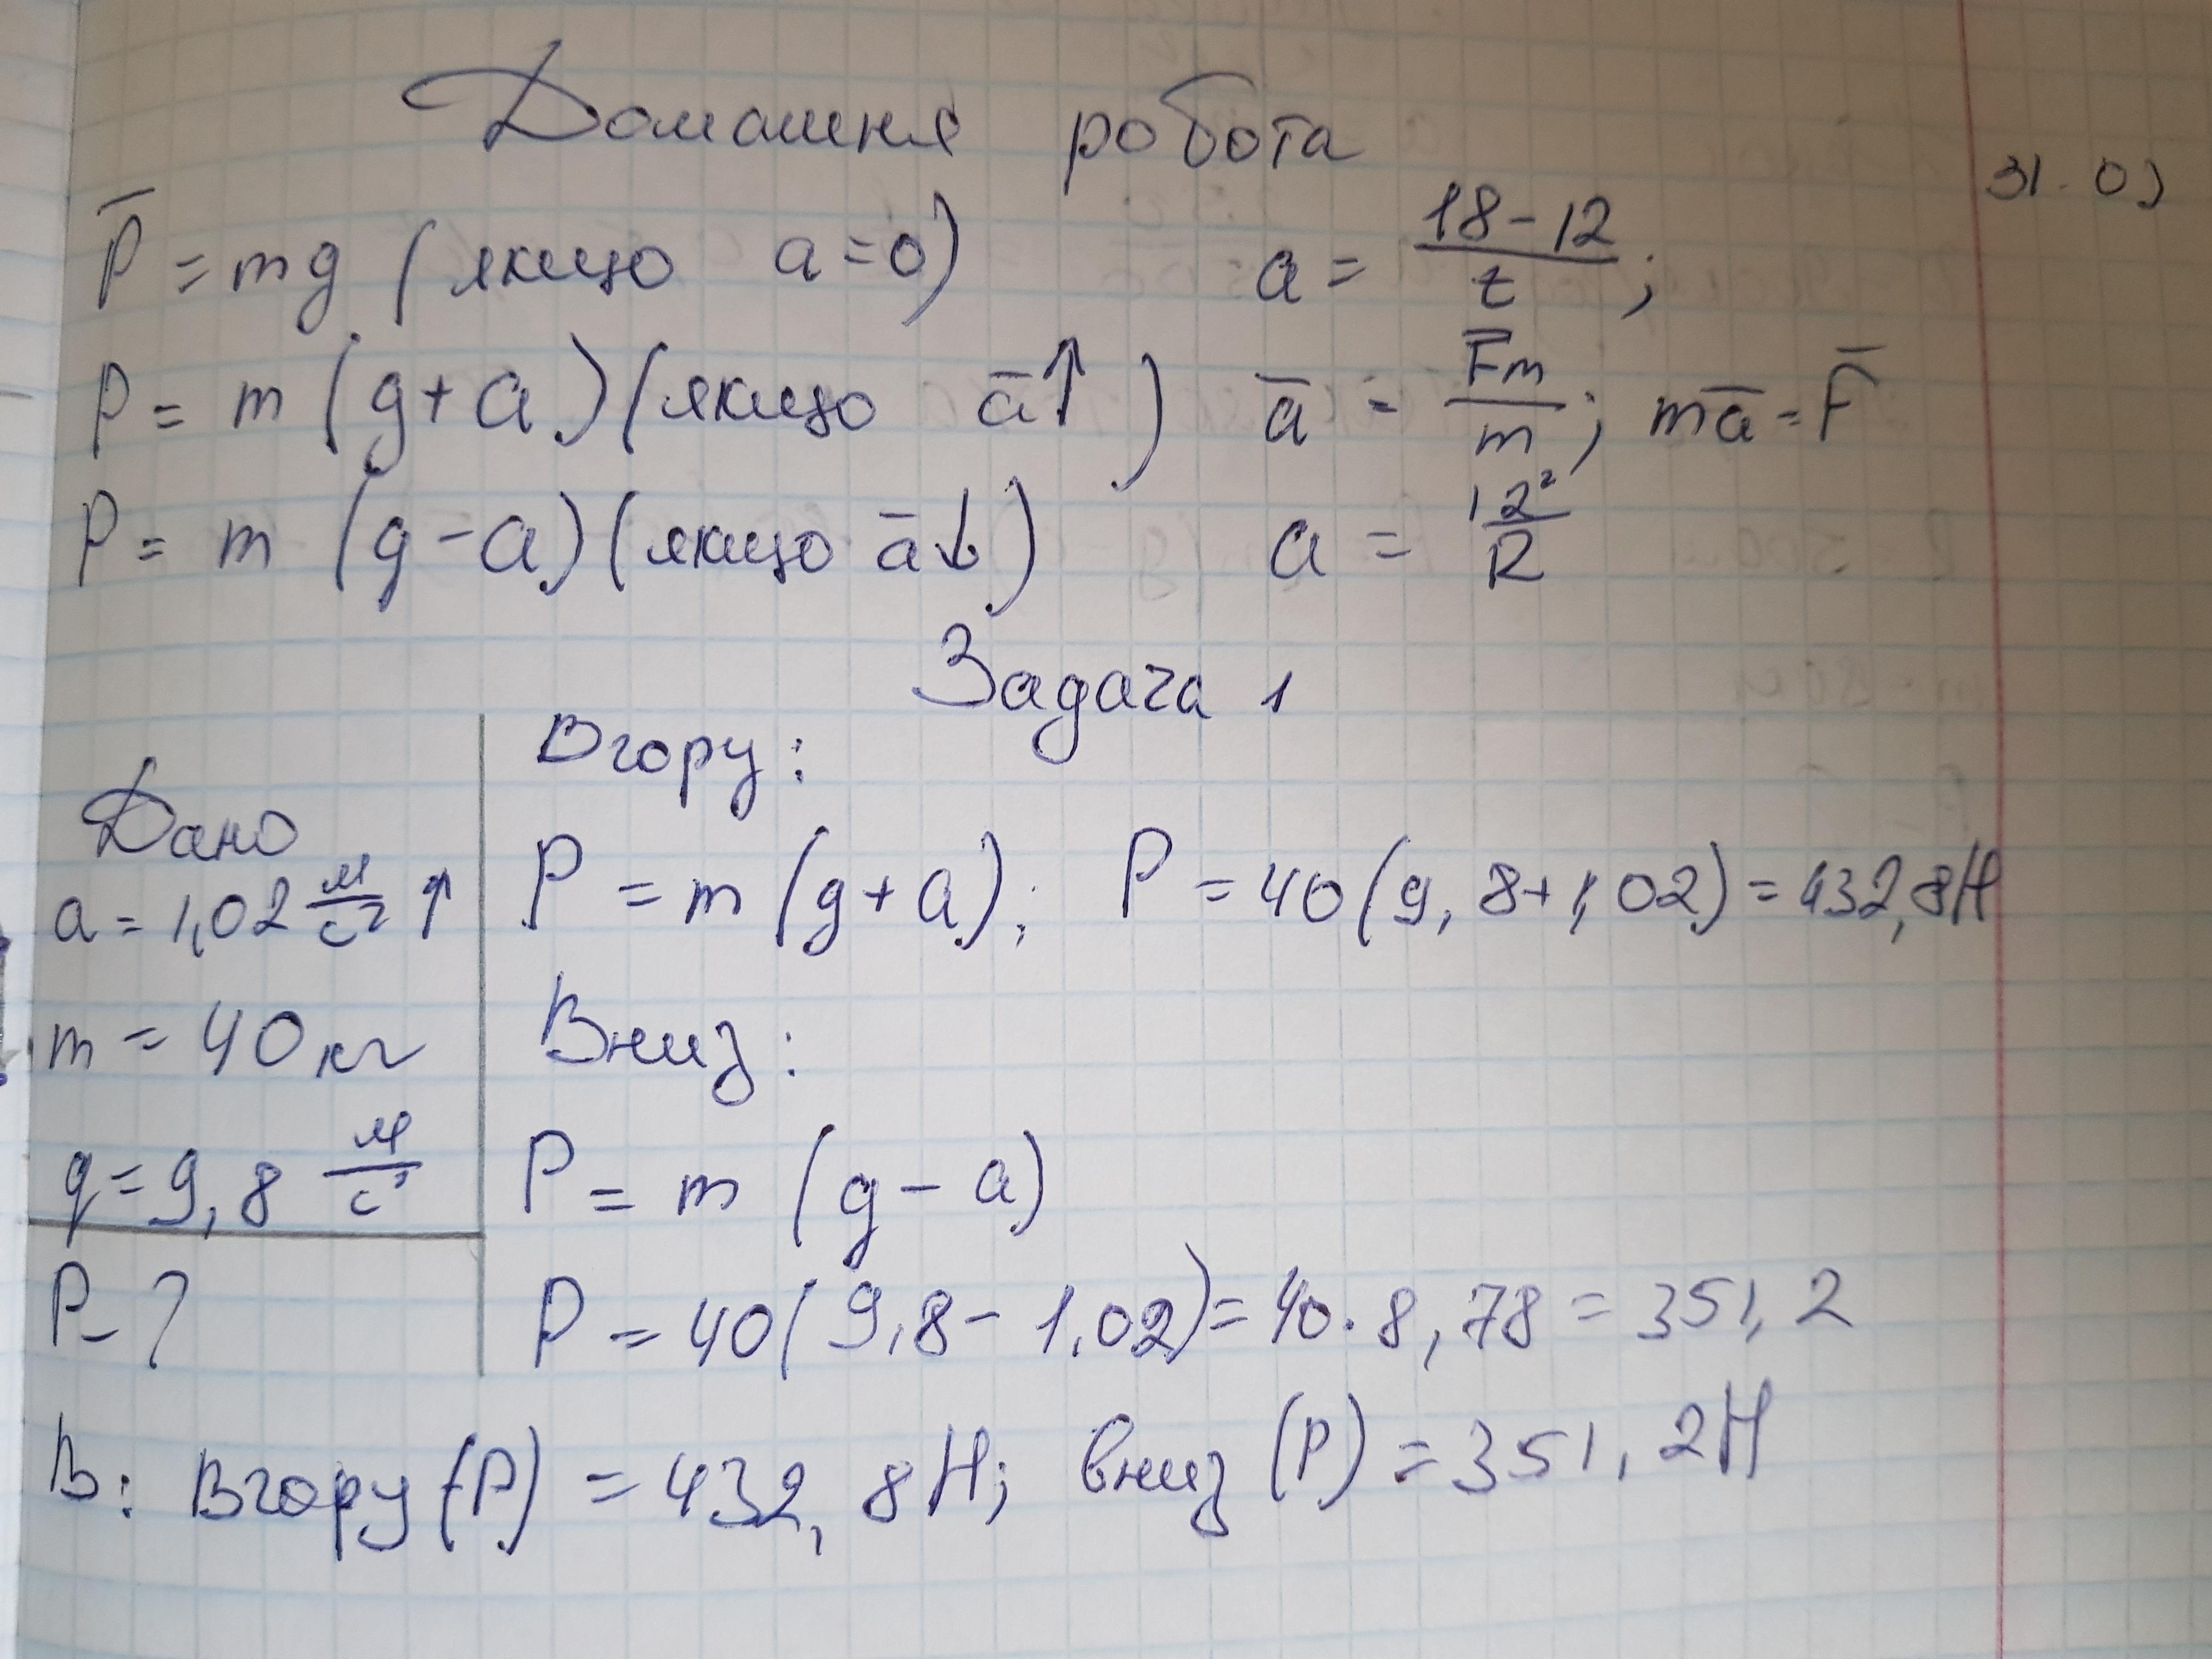 Домашня робота
31.03
P̅ = mg (якщо a=0) a = (18-12)/t;
P = m (g+a) (якщо a̅↑) a̅ = F̅m/m; ma̅ = F̅
P = m (g-a) (якщо a̅↓) a = 12²/R
Задача 1
Дано
a = 1,02 м/с² ↑
m = 40 кг
g = 9,8 м/с²
P - ?
Вгору:
P = m (g+a); P = 40 (9,8+1,02) = 432,8Н
Вниз:
P = m (g-a)
P = 40 (9,8-1,02) = 40·8,78 = 351,2
В: Вгору (P) = 432,8Н; вниз (P) = 351,2Н